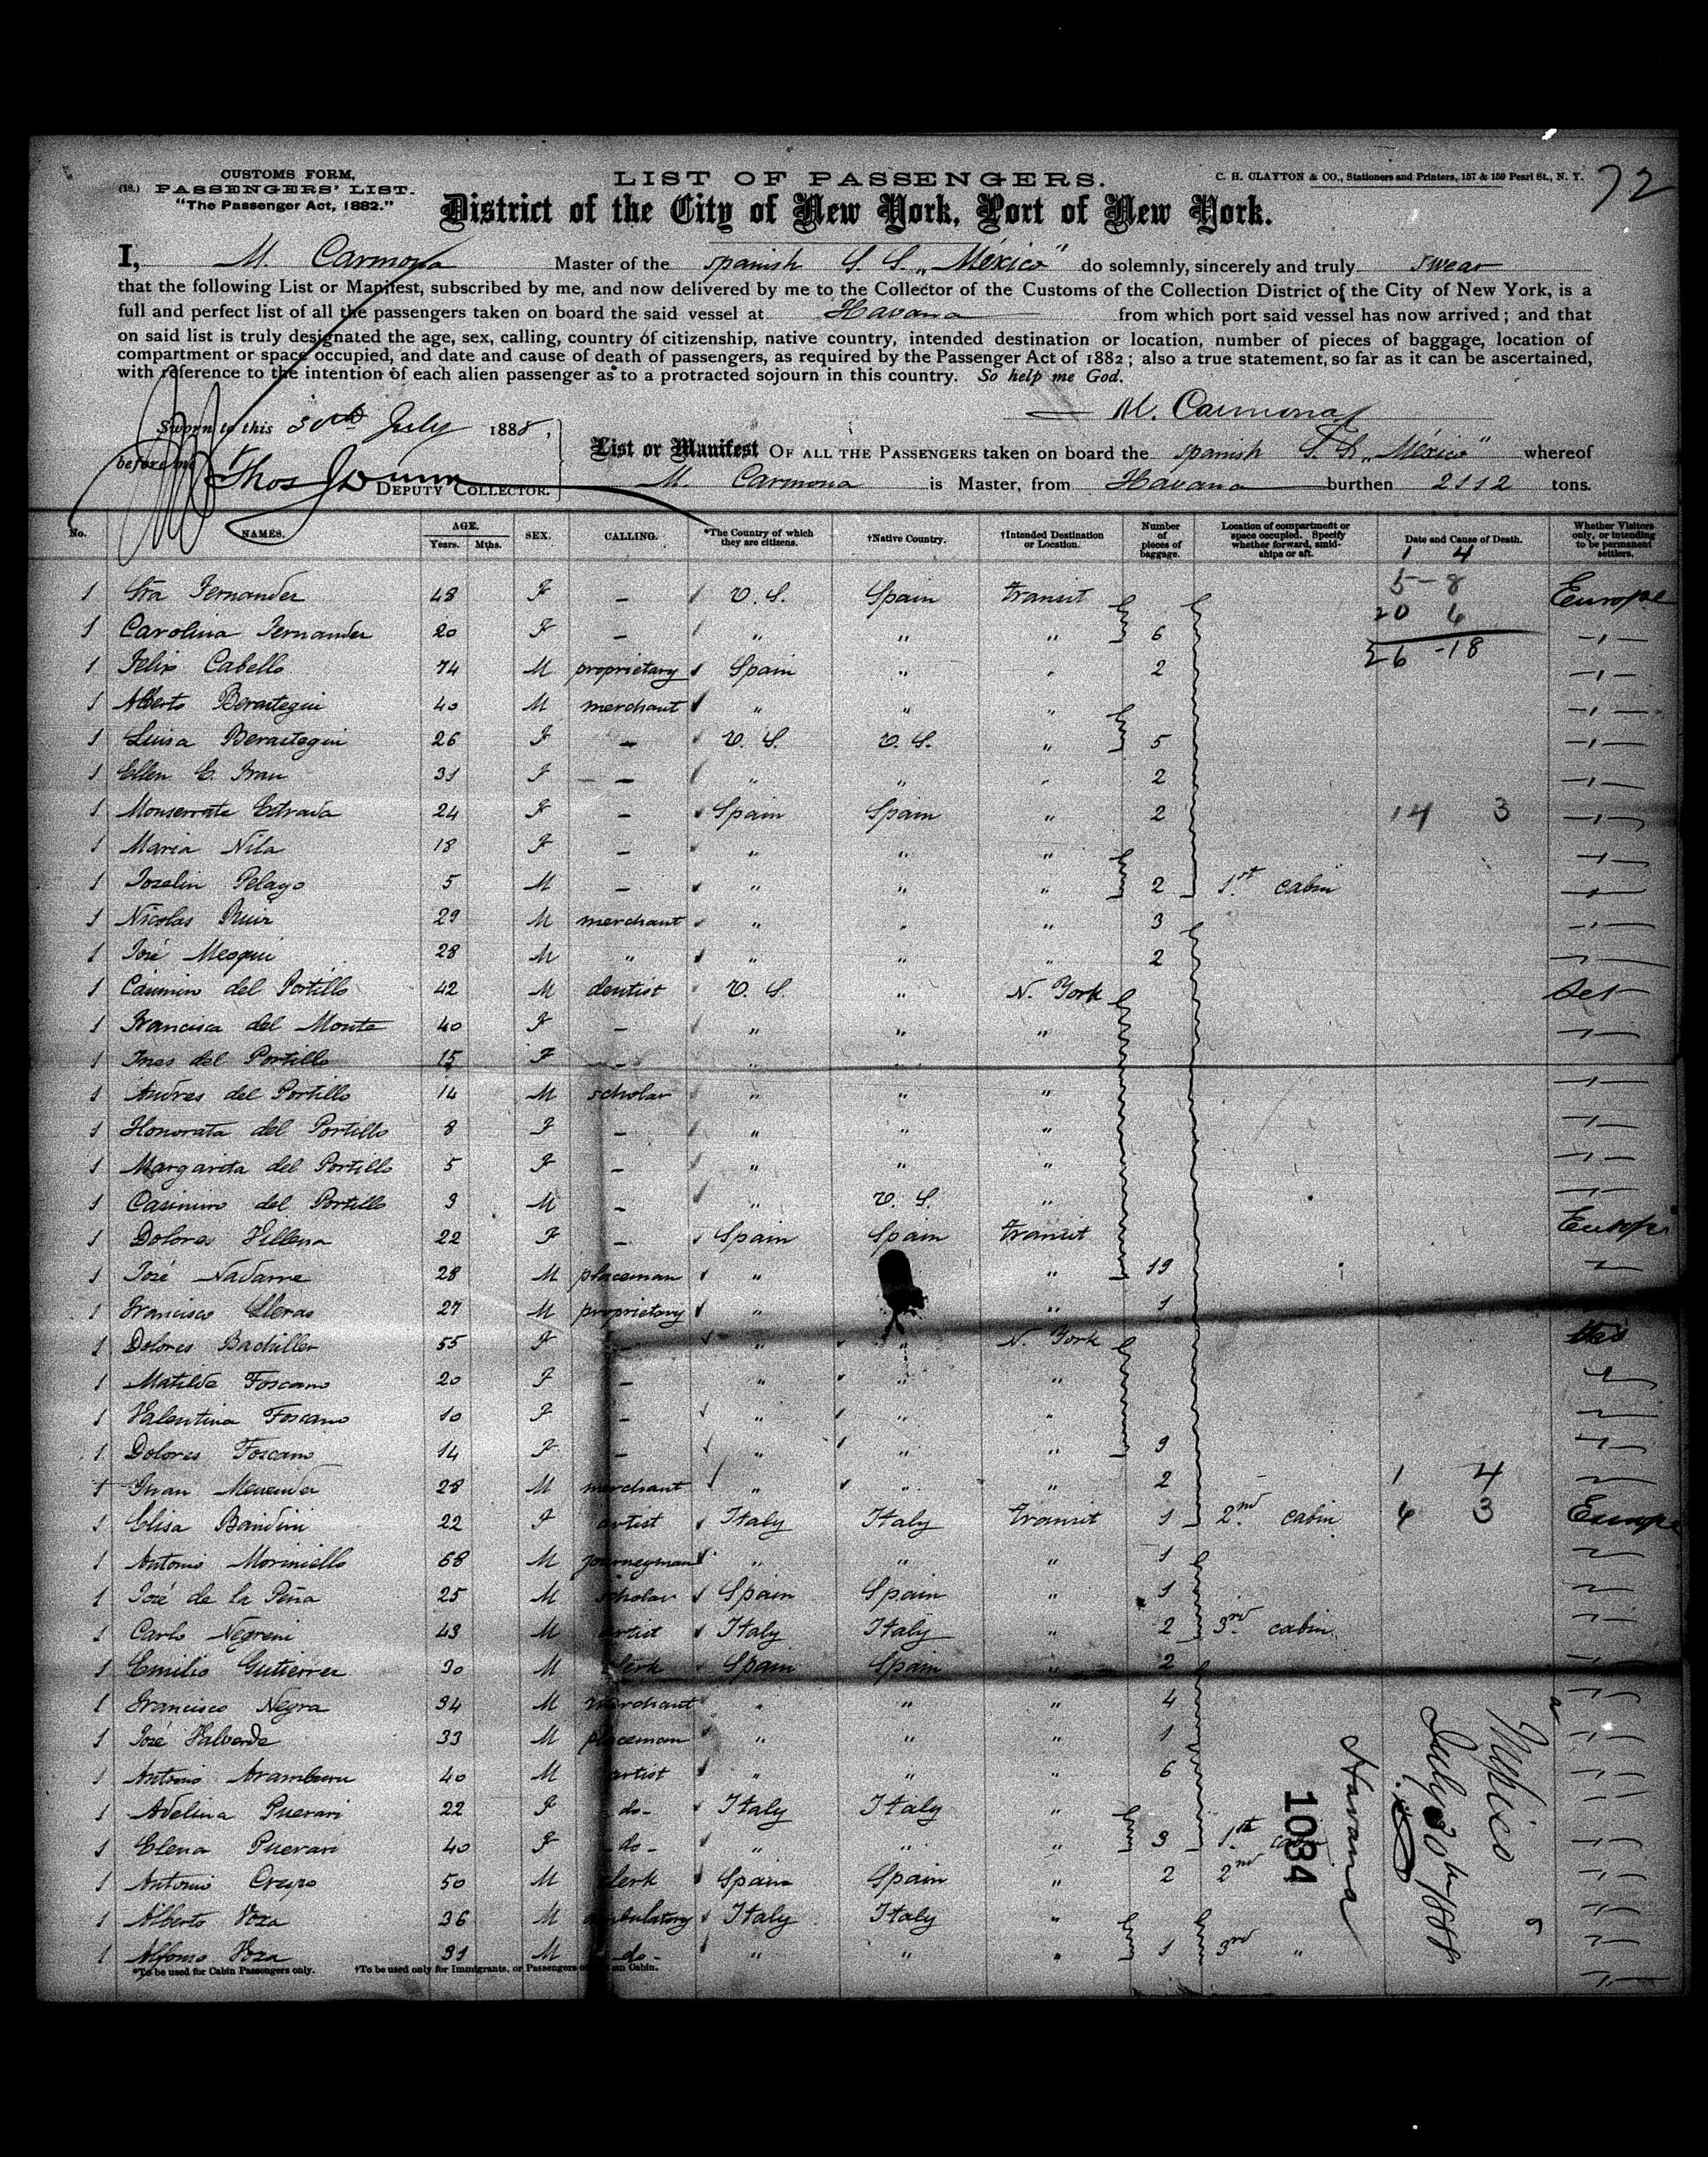 CUSTOMS FORM,
(18.) PASSENGERS' LIST.
"The Passenger Act, 1882."
LIST OF PASSENGERS.
C. H. CLAYTON & CO., Stationers and Printers, 157 & 159 Pearl St., N. Y.
72
District of the City of New York, Port of New York.
I, M. Carmona Master of the spanish S. S. „México" do solemnly, sincerely and truly swear
that the following List or Manifest, subscribed by me, and now delivered by me to the Collector of the Customs of the Collection District of the City of New York, is a
full and perfect list of all the passengers taken on board the said vessel at Havana from which port said vessel has now arrived; and that
on said list is truly designated the age, sex, calling, country of citizenship, native country, intended destination or location, number of pieces of baggage, location of
compartment or space occupied, and date and cause of death of passengers, as required by the Passenger Act of 1882; also a true statement, so far as it can be ascertained,
with reference to the intention of each alien passenger as to a protracted sojourn in this country. So help me God.
M. Carmona
Sworn to this 30th July 1888,
before me Thos
DEPUTY COLLECTOR.
List or Manifest OF ALL THE PASSENGERS taken on board the spanish S. S. „México" whereof
M. Carmona is Master, from Havana burthen 2112 tons.
No. NAMES. AGE. Years. Mths. SEX. CALLING. *The Country of which they are citizens. †Native Country. †Intended Destination or Location. Number of pieces of baggage. Location of compartment or space occupied. Specify whether forward, amidships or aft. Date and Cause of Death. Whether Visitors only, or intending to be permanent settlers.
1 4
5-8
20 6
26-18
1 Sra Fernander 48 F — U. S. Spain transit Europe
1 Carolina Fernander 20 F — " " " 6 -"-
1 Felix Cabello 74 M proprietary Spain " " 2 -"-
1 Alberto Berastegui 40 M merchant " " " -"-
1 Luisa Berastegui 26 F — U. S. U. S. " 5 -"-
1 Ellen E. 31 F — " " " 2 -"-
1 Monserrate Estrada 24 F — Spain Spain " 2 14 3 -"-
1 Maria Nila 18 F — " " " -"-
1 Pelayo 5 M — " " " 2 1st cabin -"-
1 Nicolas Ruiz 29 M merchant " " " 3 -"-
1 José 28 M " " " " 2 -"-
1 Casimiro del Portillo 42 M dentist U. S. " N. York
1 Francisca del Monte 40 F — " " " -"-
1 Ines del Portillo 15 F — " "
1 Andres del Portillo 14 M scholar " " " -"-
1 Honorata del Portillo 8 F — " " " -"-
1 Margarita del Portillo 5 F — " " " -"-
1 Casimiro del Portillo 3 M — " U. S. " -"-
1 Dolores Villena 22 F — Spain Spain transit Europe
1 José Navarre 28 M placeman " " 19 -"-
1 Francisco Lleras 27 M proprietary " " 1
1 Dolores Bachiller 55 F — " " N. York
1 Matilde Foscano 20 F — " " " -"-
1 Valentina Foscano 10 F — " " " -"-
1 Dolores Foscano 14 F — " " " 9 -"-
1 Juan Menender 28 M merchant " " 2 1 4 -"-
1 Elisa Bandini 22 F artist Italy Italy transit 1 2nd cabin 3 Europe
1 Antonio Moriniello 68 M journeyman " " " 1 -"-
1 José de la Peña 25 M scholar Spain Spain " 1 -"-
1 Carlo Negreni 43 M artist Italy Italy " 2 3rd cabin -"-
1 Emilio Gutierrer 30 M clerk Spain Spain " 2 -"-
1 Francisco Negra 34 M merchant " " " 4 -"-
1 José Valverde 33 M placeman " " " 1 -"-
1 Antonio Aramburu 40 M artist " " " 6 -"-
1 Adelina Puerari 22 F -do- Italy Italy " -"-
1 Elena Puerari 40 F -do- " " " 3 1th cabin -"-
1 Antonio Crespo 50 M clerk Spain Spain " 2 2nd -"-
1 Alberto Voza 36 M ambulatory Italy Italy " -"-
1 Alfonso Voza 31 M -do- " " " 1 3rd " -"-
Mexico
July 30th/888
Havana
1084
*To be used for Cabin Passengers only. †To be used only for Immigrants, or Passengers other than Cabin.